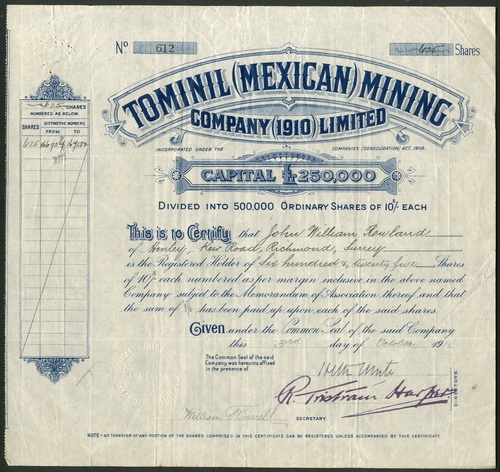 No 612
625 Shares
TOMINIL (MEXICAN) MINING
COMPANY (1910) LIMITED
INCORPORATED UNDER THE COMPANIES (CONSOLIDATION) ACT, 1908.
CAPITAL £250,000
DIVIDED INTO 500,000 ORDINARY SHARES OF 10/- EACH
625 SHARES
NUMBERED AS BELOW.
SHARES DISTINCTIVE NUMBERS.
FROM TO
625
This is to Certify that John William Rowland
of Henley, Kew Road, Richmond, Surrey
is the Registered Holder of Six hundred & twenty five Shares
of 10/- each numbered as per margin inclusive in the above named
Company subject to the Memorandum of Association thereof and that
the sum of has been paid up upon each of the said shares.
Given under the Common Seal of the said Company
this 3rd day of October 191
The Common Seal of the said
Company was hereunto affixed
in the presence of
R. Tristram Harper
DIRECTORS.
William
SECRETARY.
NOTE:-NO TRANSFER OF ANY PORTION OF THE SHARES COMPRISED IN THIS CERTIFICATE CAN BE REGISTERED UNLESS ACCOMPANIED BY THIS CERTIFICATE